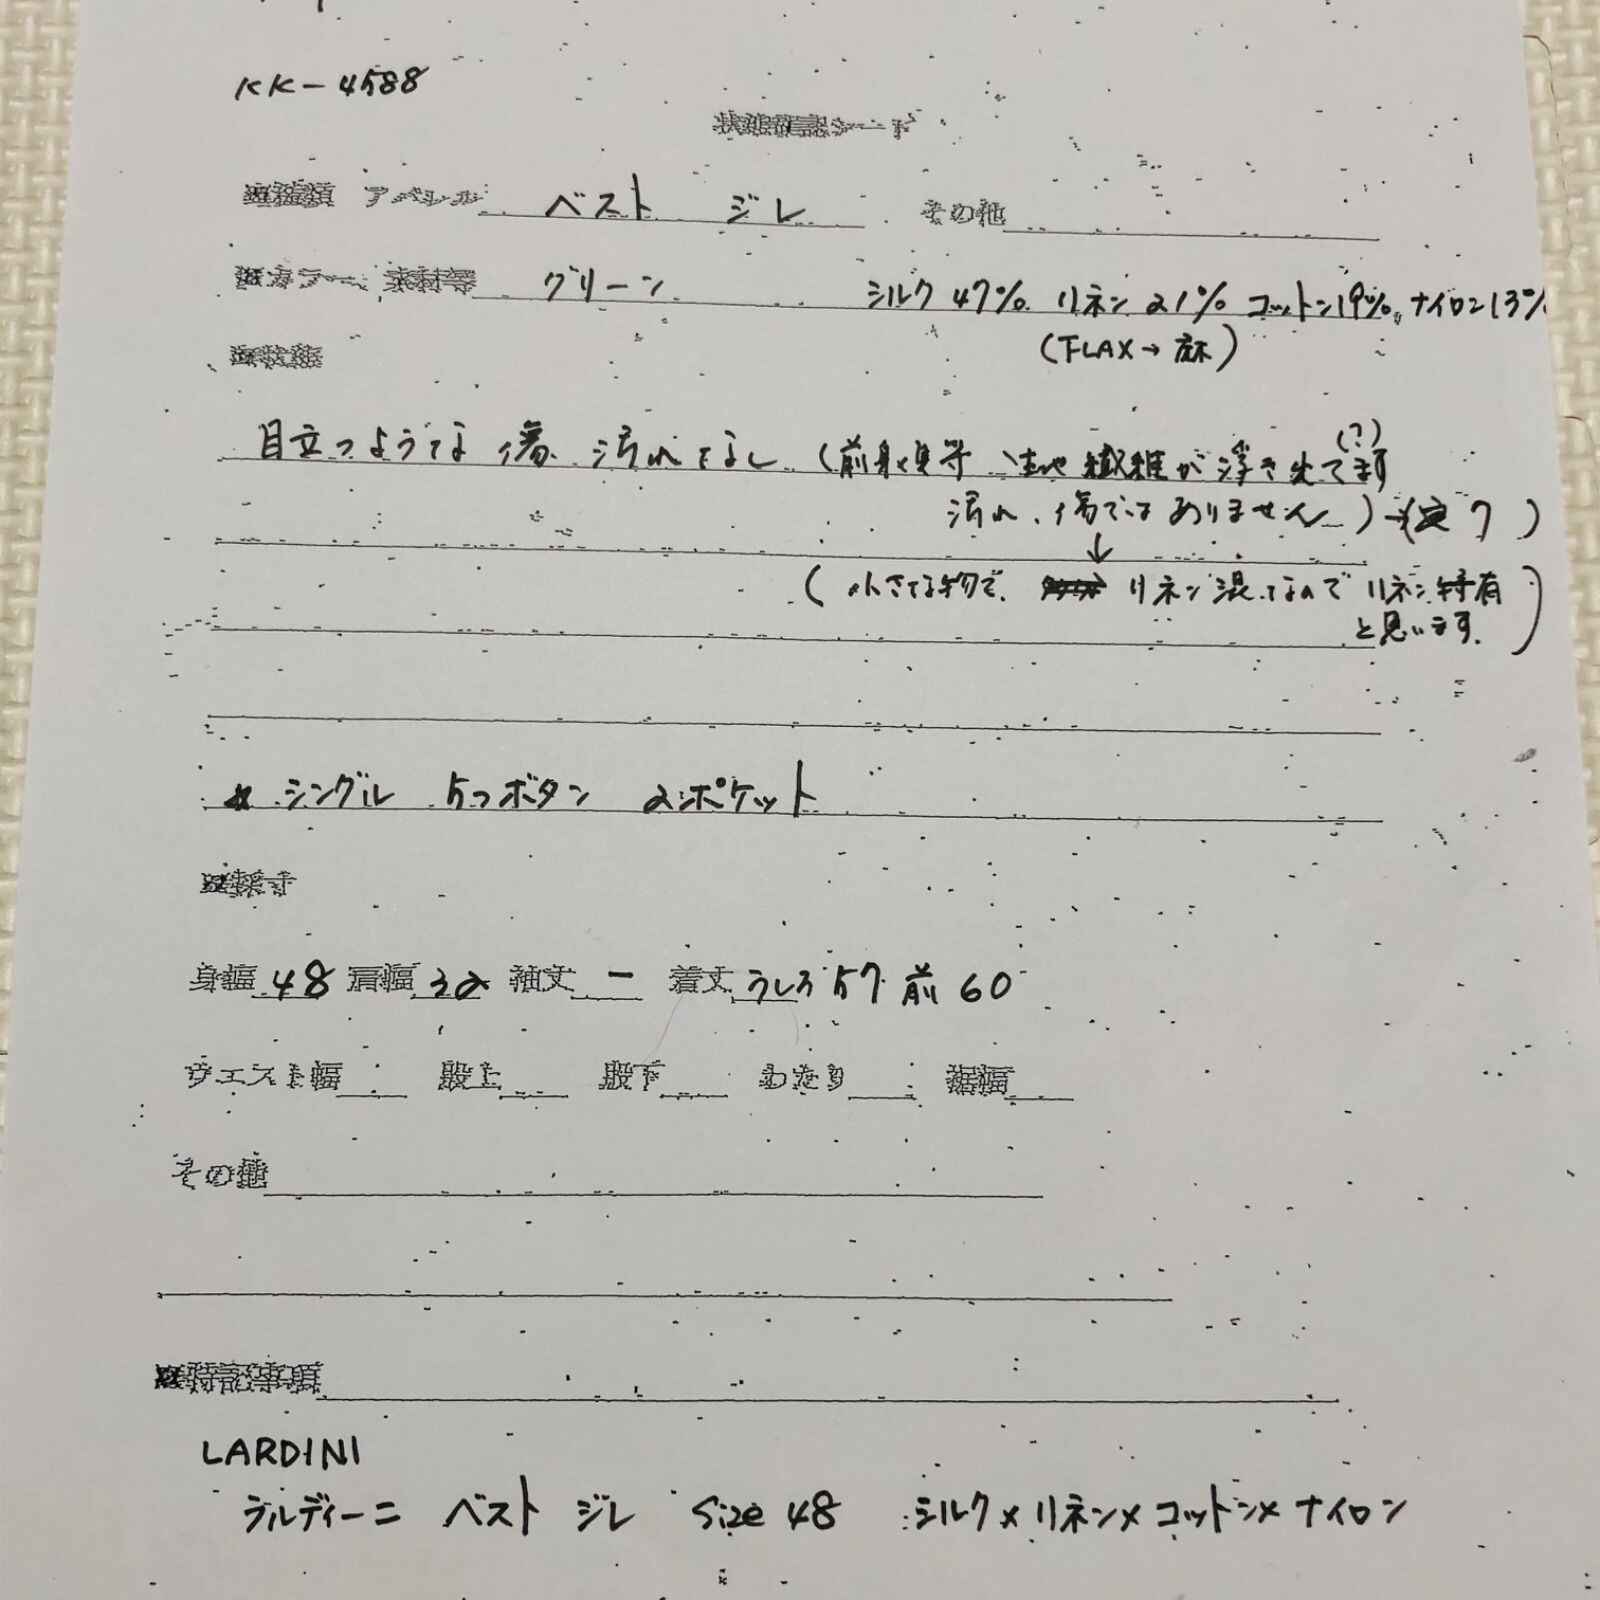 KK-4588
状態確認シート
アパレル ベスト ジレ その他
カラー 素材等 グリーン シルク 47% リネン 21% コットン19% ナイロン13%
(FLAX→麻)
■状態
目立つような傷 汚れなし (前身頃等 生地繊維が浮き出てます(?)
汚れ、傷ではありません)
(小さな物で、 リネン混なので リネン特有
と思います。)
シングル 5つボタン 2ポケット
■採寸
身幅 48 肩幅 32 袖丈 ー 着丈 うしろ 57 前 60
ウエスト幅 股上 股下 わたり 裾幅
その他
特記事項
LARDINI
ラルディーニ ベスト ジレ Size 48 シルク×リネン×コットン×ナイロン